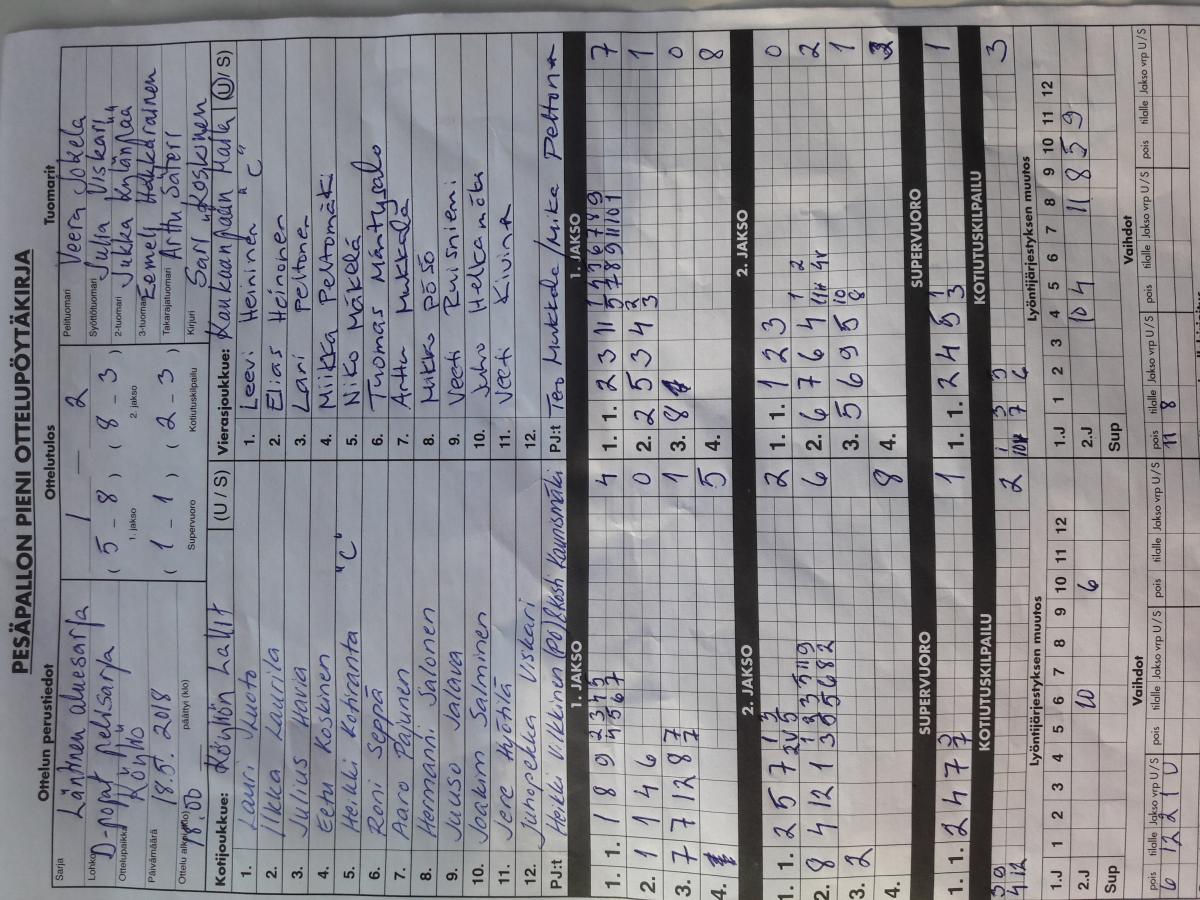 PESÄPALLON PIENI OTTELUPÖYTÄKIRJA
Ottelun perustiedot
Sarja Läntinen aluesarja
Lohko D-pojat pelisarja
Ottelupaikka Köyliö
Päivämäärä 18.5. 2018
Ottelu alkoi (klo) 18.00 päättyi (klo)
Ottelutulos
1 — 2
( 5 - 8 ) ( 8 - 3 )
1. jakso 2. jakso
( 1 - 1 ) ( 2 - 3 )
Supervuoro Kotiutuskilpailu
Tuomarit
Pelituomari Veera Jokela
Syöttötuomari Julia Viskari
2-tuomari Jukka Kylänpää
3-tuomari Eemeli
Takarajatuomari Arttu Säteri
Kirjuri Sari Koskinen
Kotijoukkue: Köyliön Lallit (U / S)
1. Lauri Kuoto
2. Ilkka Laurila
3. Julius Havia
4. Eetu Koskinen
5. Heikki Kotiranta "C"
6. Roni Seppä
7. Aaro Pajunen
8. Hermanni Salonen
9. Juuso Jalava
10. Joakim Salminen
11. Jere
12. Juhopekka Uskari
PJ:t Heikki Vilkkinen (PJ) & Kosti Kaunismäki
Vierasjoukkue: Kankaanpään Maila (U / S)
1. Leevi Heininen "C"
2. Elias Heinonen
3. Lari Peltonen
4. Miikka Peltomäki
5. Niko Mäkelä
6. Tuomas Mäntysalo
7. Arttu Mukkala
8. Mikko Pösö
9. Veeti Ruisniemi
10. Juho Helkamäki
11. Veeti Kivinta
12.
PJ:t Teo Mukkala / Mika Peltona
1. JAKSO
1. 1. 1 8 9 2 3 4 5 4
4 5 6 7
2. 1 4 6 0
3. 7 12 8 7 1
7
4. 5
2. JAKSO
1. 1. 2 5 7 2
2. 8 4 12 1 6
3. 2
4. 8
SUPERVUORO
1. 1. 2 4 7 7 1
KOTIUTUSKILPAILU
3 9 2
4 12
1. JAKSO
1. 1. 2 3 11 1 3 6 7 8 9 7
2. 2 5 3 4 2 1
3
3. 8 0
4. 8
2. JAKSO
1. 1. 1 2 3 0
2. 6 7 6 4 2
3. 5 6 9 5 10 1
8
4. 3
SUPERVUORO
1. 1. 2 4 5 1 1
3
KOTIUTUSKILPAILU
3
Lyöntijärjestyksen muutos
1 2 3 4 5 6 7 8 9 10 11 12
1.J
2.J 10 6
Sup
Lyöntijärjestyksen muutos
1 2 3 4 5 6 7 8 9 10 11 12
1.J
2.J 10 4 11 8 5 9
Sup
Vaihdot
pois tilalle Jakso vrp U / S pois tilalle Jakso vrp U / S pois tilalle Jakso vrp U / S
6 12 2 1 U
Vaihdot
pois tilalle Jakso vrp U / S pois tilalle Jakso vrp U / S pois tilalle Jakso vrp U / S
11 8